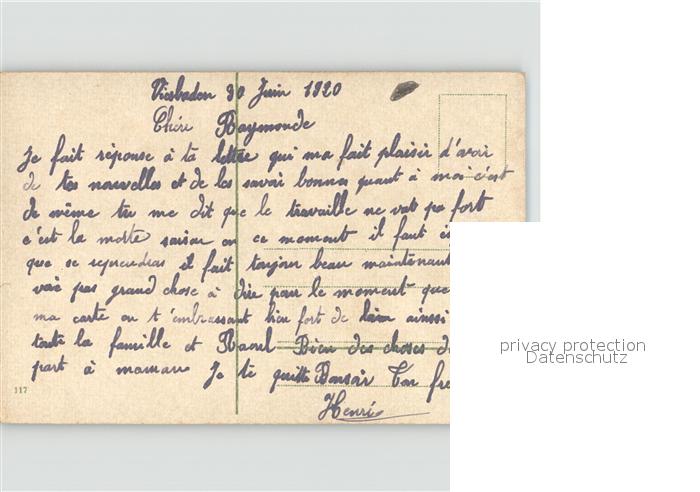 Viesbaden 30 Juin 1920
Chére Raymonde
Je fait réponse à ta lettre qui ma fait plaisir d'avoir
de tes nouvelles et de les savoir bonnes quant à moi c'est
de même tu me dit que le travaille ne vat pa fort
c'est la morte saison en ce moment il faut
que se reprendras il fait toujour beau maintenant
pas grand chose à dire pour le moment que
ma carte en t'embrassant bien fort de loin ainsi
toute la famille et Raoul Bien des choses de
part à maman Je te quitte Bonsoir Ton fre
Henri
117
privacy protection
Datenschutz